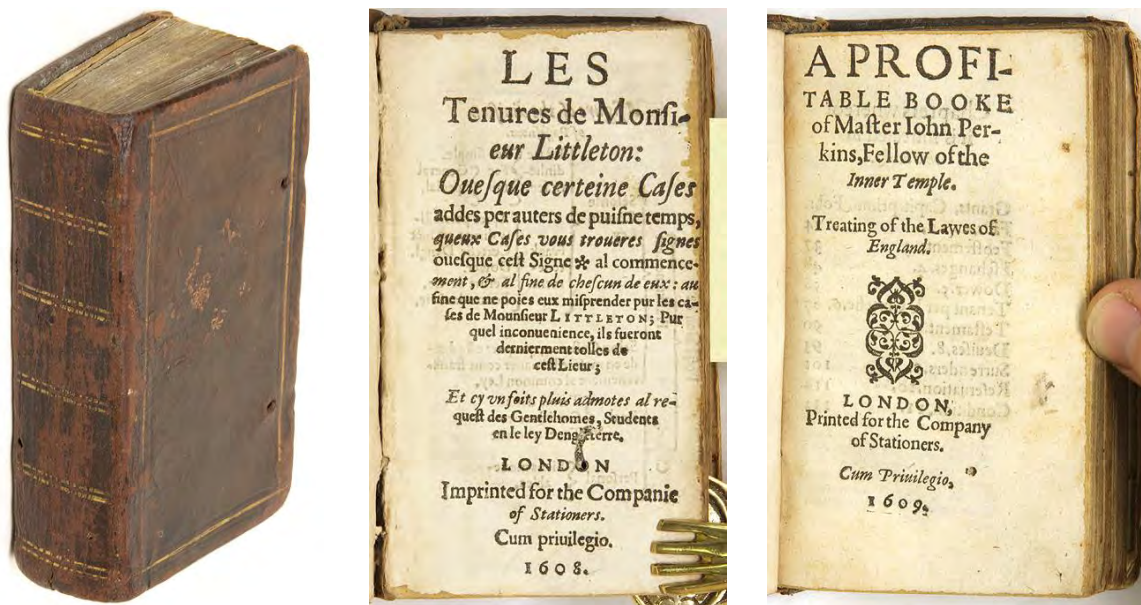 LES
Tenures de Monſi-
eur Littleton:
Oueſque certeine Caſes
addes per auters de puiſne temps,
queux Caſes vous troueres ſignes
oueſque ceſt Signe ✻ al commence-
ment, & al fine de cheſcun de eux: au
fine que ne poies eux miſprender pur les ca-
ſes de Mounſieur LITTLETON; Pur
quel inconuenience, ils fueront
dernierment tolles de
ceſt Lieur;
Et cy vn foits pluis admotes al re-
queſt des Gentlehomes, Students
en le ley
LONDON
Imprinted for the Companie
of Stationers.
Cum priuilegio.
1608.
A PROFI-
TABLE BOOKE
of Maſter Iohn Per-
kins, Fellow of the
Inner Temple.
Treating of the Lawes of
England.
LONDON,
Printed for the Company
of Stationers.
Cum Priuilegio,
1609.